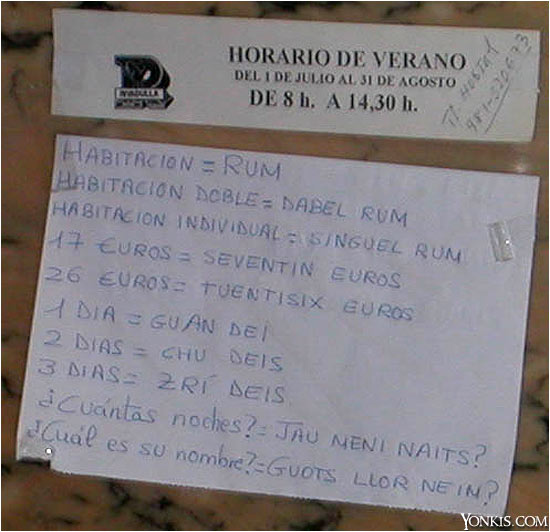 HORARIO DE VERANO
DEL 1 DE JULIO AL 31 DE AGOSTO
DE 8 h. A 14,30 h.
HABITACION = RUM
HABITACION DOBLE = DABEL RUM
HABITACION INDIVIDUAL = SINGUEL RUM
17 EUROS = SEVENTIN EUROS
26 EUROS = TUENTISIX EUROS
1 DIA = GUAN DEI
2 DIAS = CHU DEIS
3 DIAS = ZRÍ DEIS
¿Cuántas noches? = JAU MENI NAITS?
¿Cuál es su nombre? = GUOTS LLOR NEIM?
YONKIS.COM